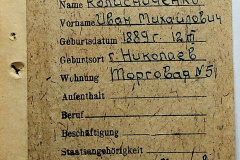 Name Колисниченко
Vorname Иван Михайлович
Geburtsdatum 1889 г. 12/III
Geburtsort г. Николаев
Wohnung Торговая №51
Aufenthalt
Beruf
Beschäftigung
Staatsangehörigkeit